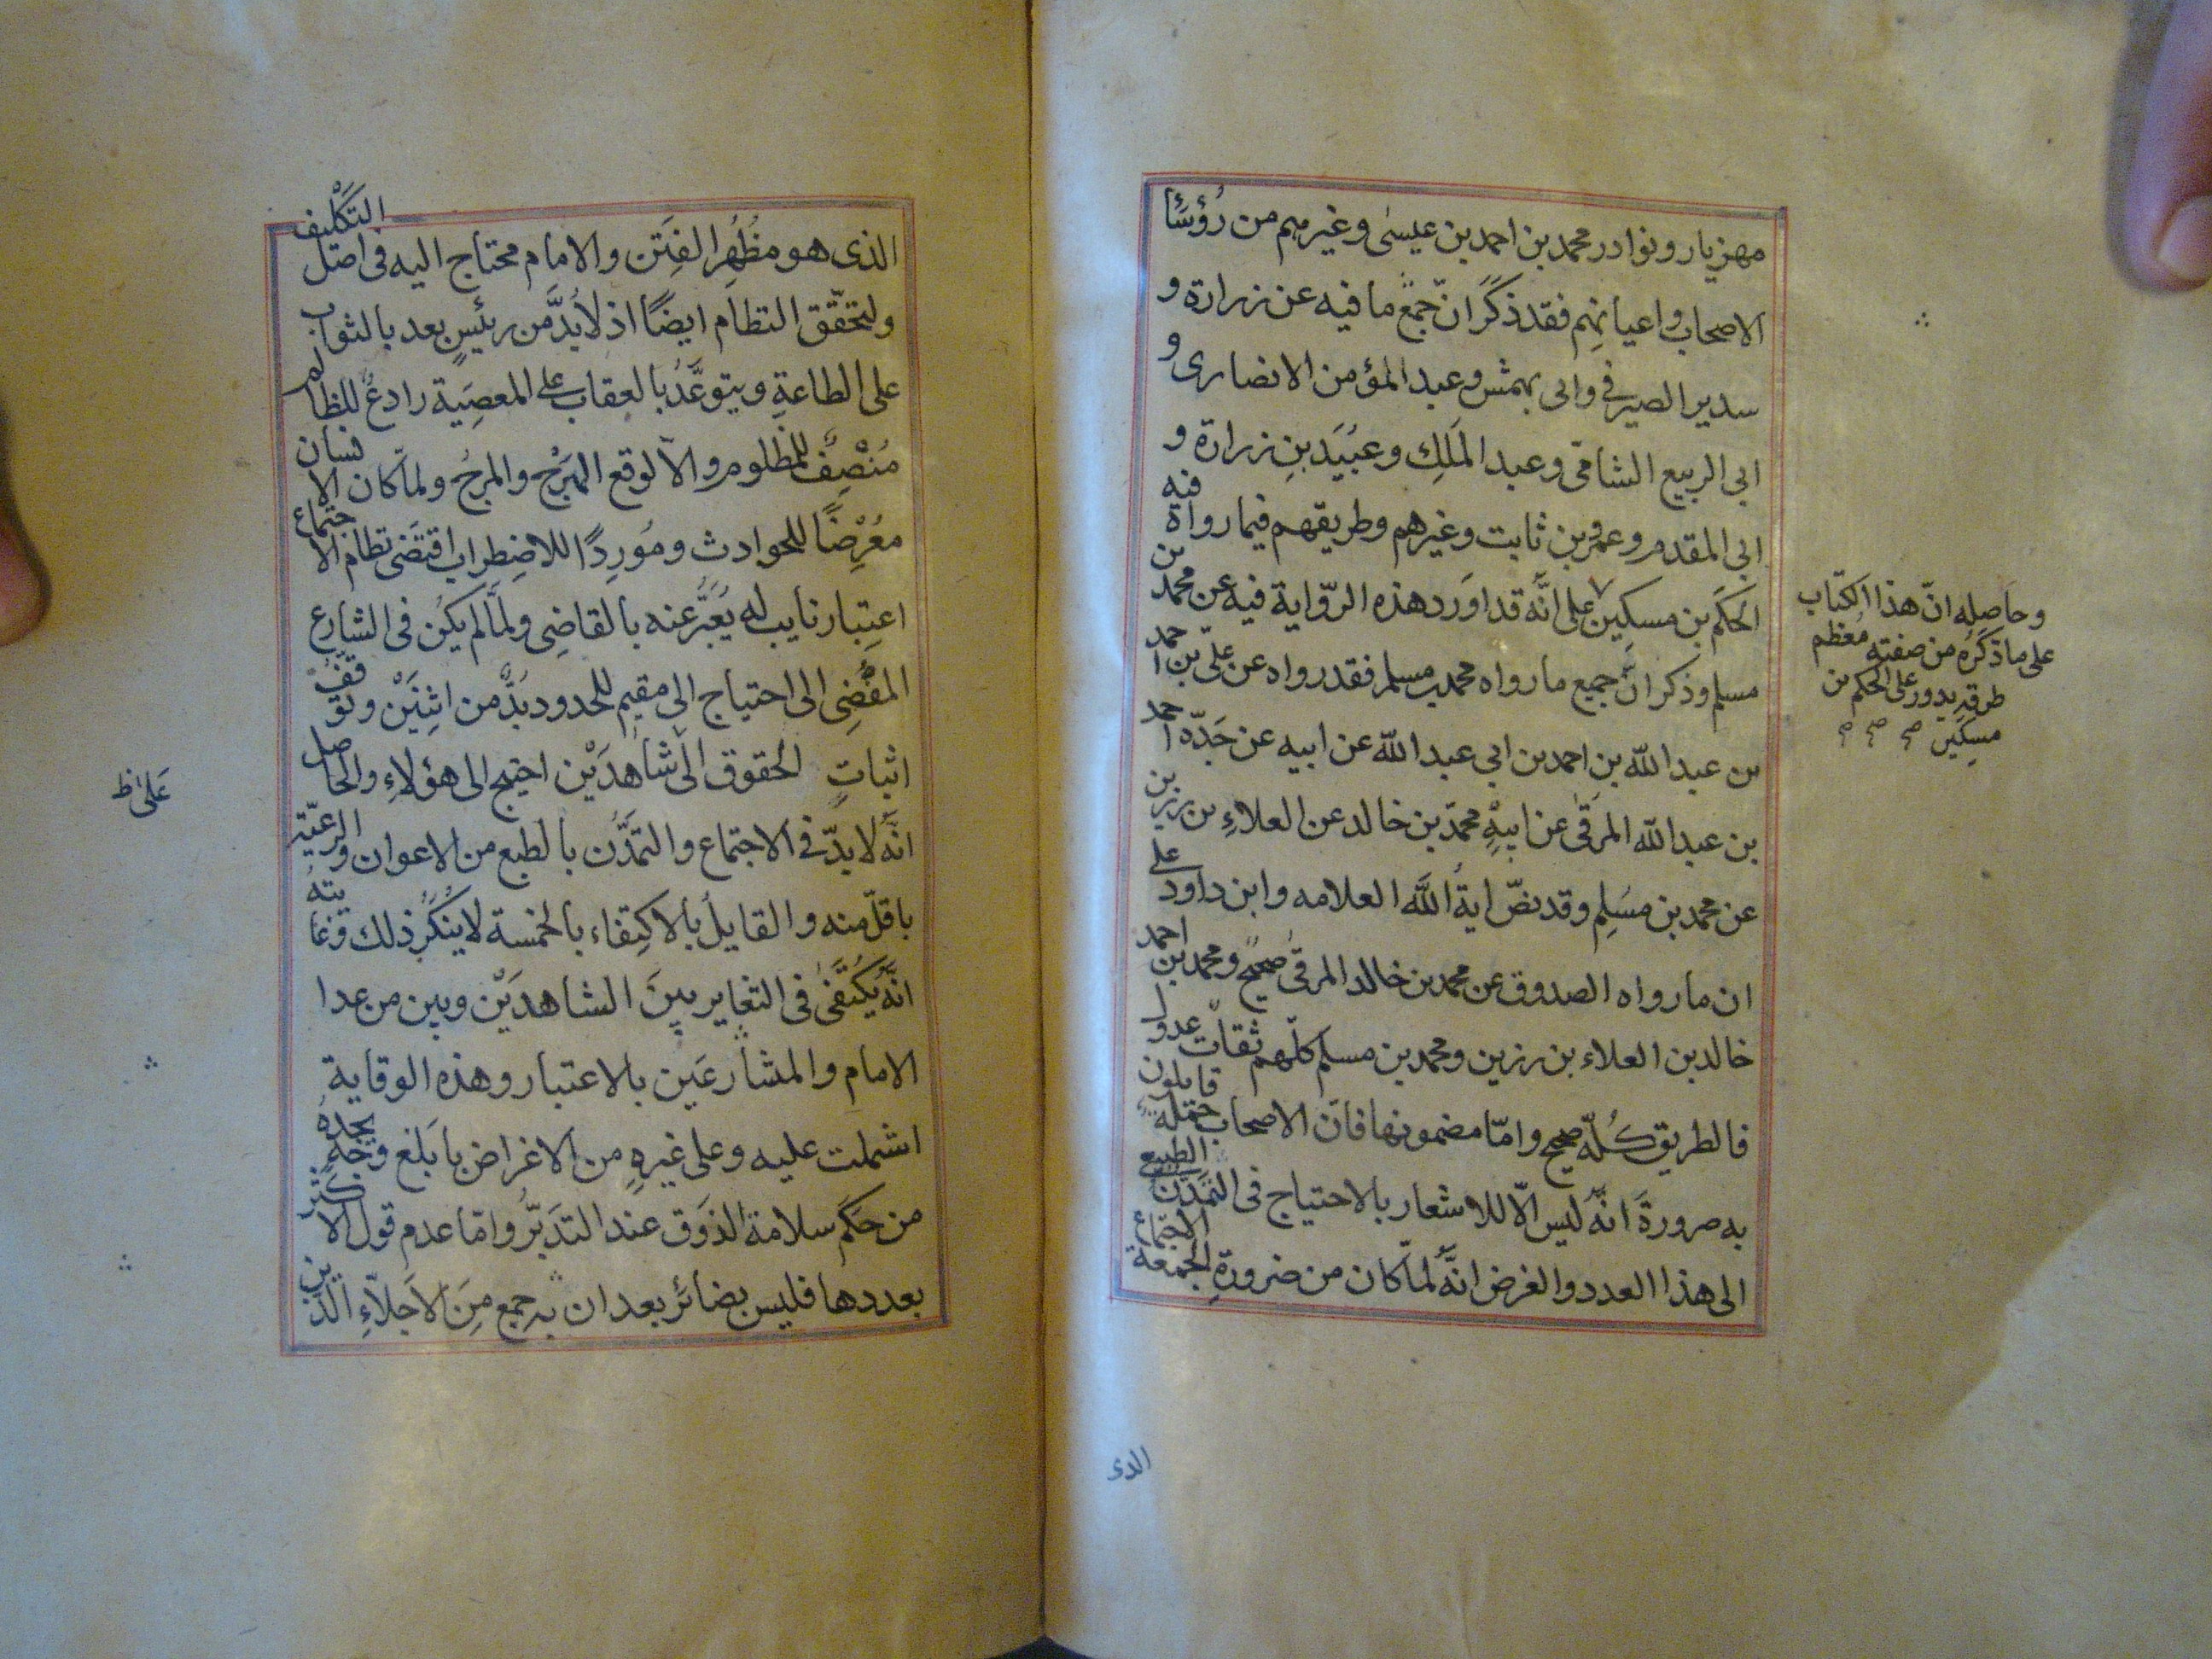 مهزيار ونوادر محمد بن احمد بن عيسى وغيرهم من رُؤسَا
الاصحاب واعيانِهم فقد ذكر انّ جمع ما فيه عن زرارة و
سدير الصيرفى وابى بهمش وعبد المؤمن الانصارى و
ابى الربيع الشامى وعبد المَلِك وعُبَيد بنِ زرارة و
ابى المقدم وعمرو بن ثابت وغيرهم وطريقهم فيما رواه فيه
الحكَم بن مسكين على انّه قد اوَرد هذه الرّواية فيه عن محمد بن
مسلم وذكر انّ جميع ما رواه محمد بن مسلم فقد رواه عن على بن احمد
بن عبد الله بنِ احمد بن ابي عبد الله عن ابيه عن جَدّه احمد
بن عبد الله المرقى عن ابيْهِ محمّد بن خالد عن العلاءِ بن رزين
عن محمد بن مسَلِم وقد نصّ ايةُ الله العلامه وابن داود على
ان ما رواه الصدوق عن محمد بن خالد المرقى صحيح ومحمد بن احمد
خالد بن العلاء بن رزين ومحمد بن مسلم كلّهم ثقاّت عدول
فالطريق كُلّه صحيح وامّا مضمونها فانّ الاصحاب قايلون
به صرورةَ انّه ليس الّا للاشعار بالاحتياج فى التمدّن الطبيع
الى هذا العدد والغرض انّه لمّا كان من ضرورةِ الاجتماع
وحاصله انّ هذا الكتاب
على ما ذكرَه من صفته مُعظم
طرقه يدور على الحكم بن
مسكين صح صح صح
الذى
الذى هو مظُهِر الفِتَن والامام محتاج اليه فى اصل التكْليف
ولتحقّق النظام ايضًا اذ لابُدَّ من رئيسٍ بعد بالثواب
على الطاعةِ ويتوعَّدُ بالعِقاب على المعصِيَة رادعُ للظالم
مُنْصِفٌ للمظلوم والّا لوقع الهَرَْجُ والمرجُ ولمّا كان الانسان
معُرِضًا للحوادث ومَورِدًا للاضِطراب اقتضَى نظام الاجتماع
اعتِبار نايب له يُعَبَّر عنه بالقاضِى ولمّا لم يكُن فى الشارع
المفُضِى الى احتياج الى مقيم للحدود بُدَّ من اثنِيَنْ وتوقف
اثباتِ الحقوق الى شاهدَيْن احتيج الى هؤلاءِ والحاصل
انّه لابدّ فى الاجتماع والتمدّن بالطبع من الاعوان والرعيّة
باقلّ منه والقايلُ بالاكتِفاء بالخمسة لاينكُرُ ذلك وغايته
انّه يُكتَفَى فى التغاير بينَ الشاهدَيْن وبين من عدا
الامام والمشارعَين بالاعتبار وهذه الوقاية
اشملت عليه وعلى غيرِه من الاغراض با بَلغ وَجْه يجدهُ
من حكَم سلامة الذوَق عند التدَبّر وامّا عدم قول الاكثر
بعددها فليس بضائرٍ بعد ان به جمع مِنَ الاَجَلّاءِ الذين
عَلى ظ